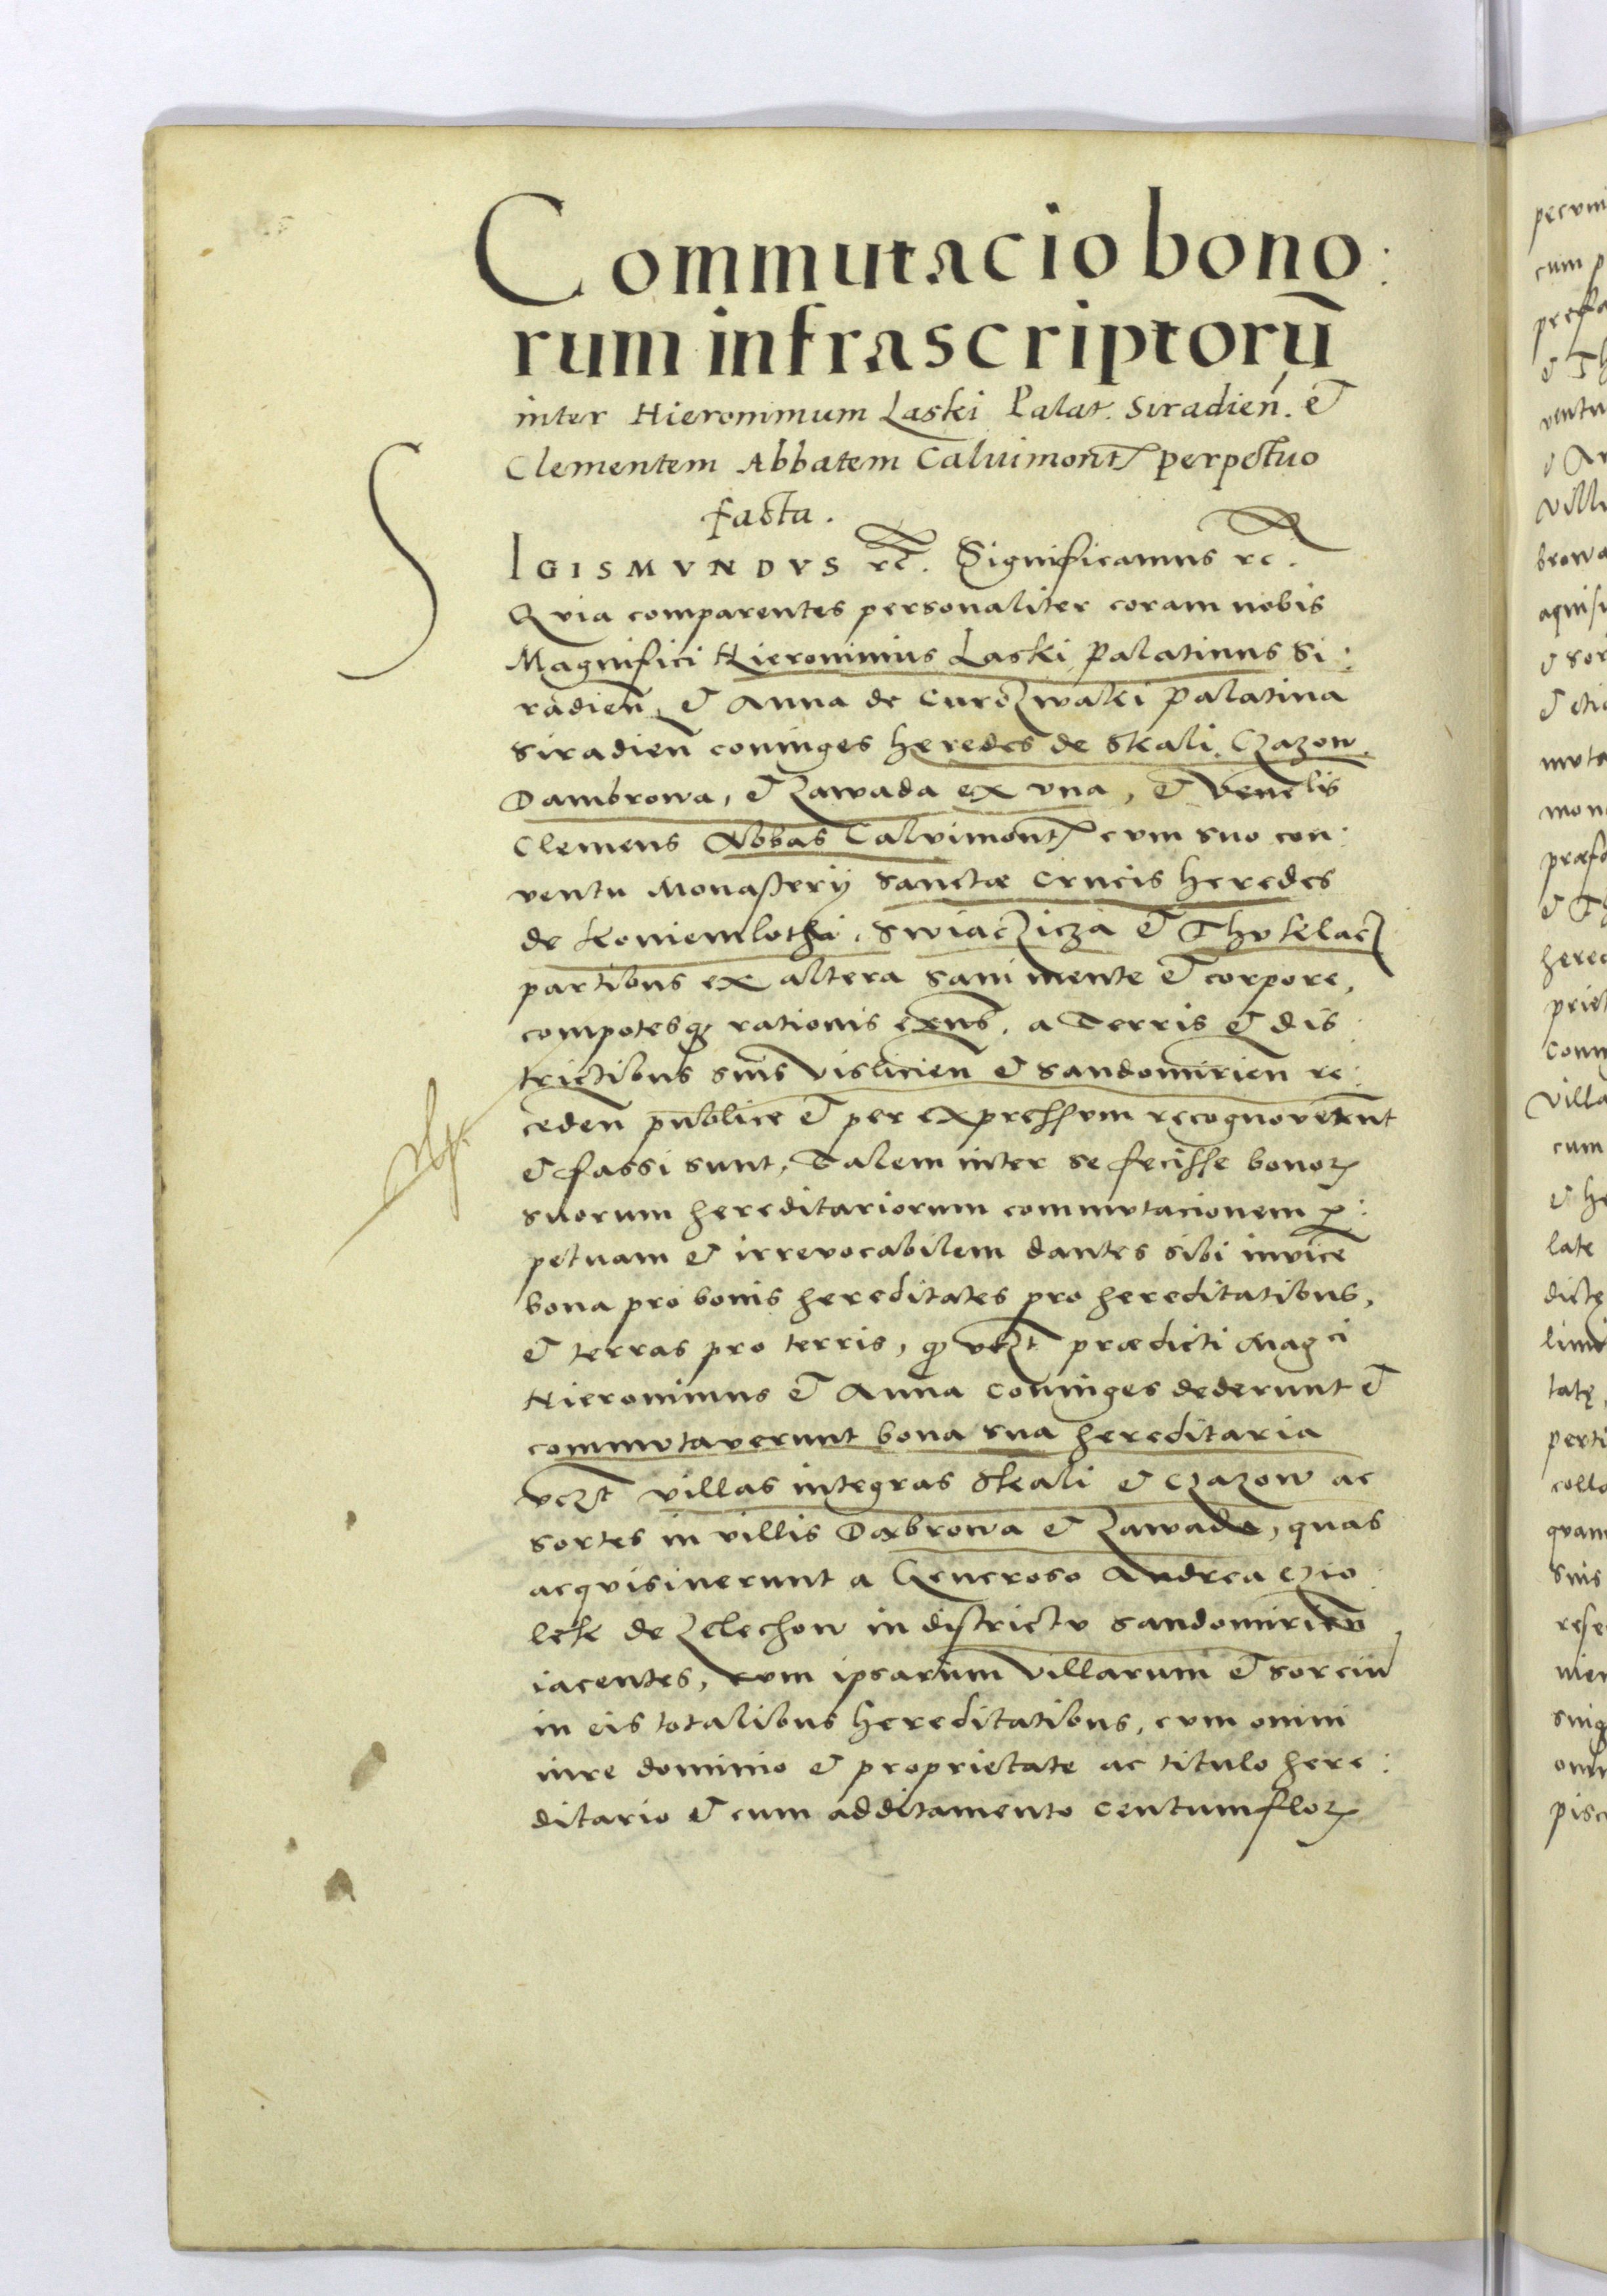 Commutacio bono:
rum infrascriptorū
inter Hieronimum Laski Palat. Siradień. et
Clementem Abbatem Calvimonť perpetuo
facta.
SIGISMVNDVS rc̄. Significamus rc.
Quia comparentes personaliter coram nobis
Magnifici Hieronimus Laski Palatinus Si:
radień, et Anna de Curozwaki Palatina
Siradień coniuges heredes de Skali, Czazow,
Dambrowa, et Zawada ex vna, et Venělis
Clemens Abbas Calvimonť cum suo con:
ventu Monasterij Sanctæ Crucis heredes
de Koniemlothi, Swiaczicza et Thuklacz
partibus ex altera sani mente et corpore,
compotesq₃ rationis exn̄s, a Terris et dis:
trictibus suis Vislicień et Sandomirień re:
cedeń publice et per expressum recognoverunt
et fassi sunt, Talem inter se fecisse bonoꝝ
suorum hereditariorum commutacionem ꝑ:
petuam et irrevocabilem dantes sibi invicē
bona pro bonis hereditates pro hereditatibus,
et terras pro terris, ꝙ vcz̄t prædicti Magci
Hieronimus et Anna coniuges dederunt et
commutaverunt bona sua hereditaria
vcz̄t villas integras Skali et Czazow ac
sortes in villis Dąbrowa et Zawada, quas
acquisiuerunt a Generoso Andrea Czio:
lek de Zelechow in districtu Sandomirień
iacentes, cum ipsarum villarum et sorciū
in eis totalibus hereditatibus, cum omni
iure dominio et proprietate ac titulo here:
ditario et cum additamento centum floꝝ